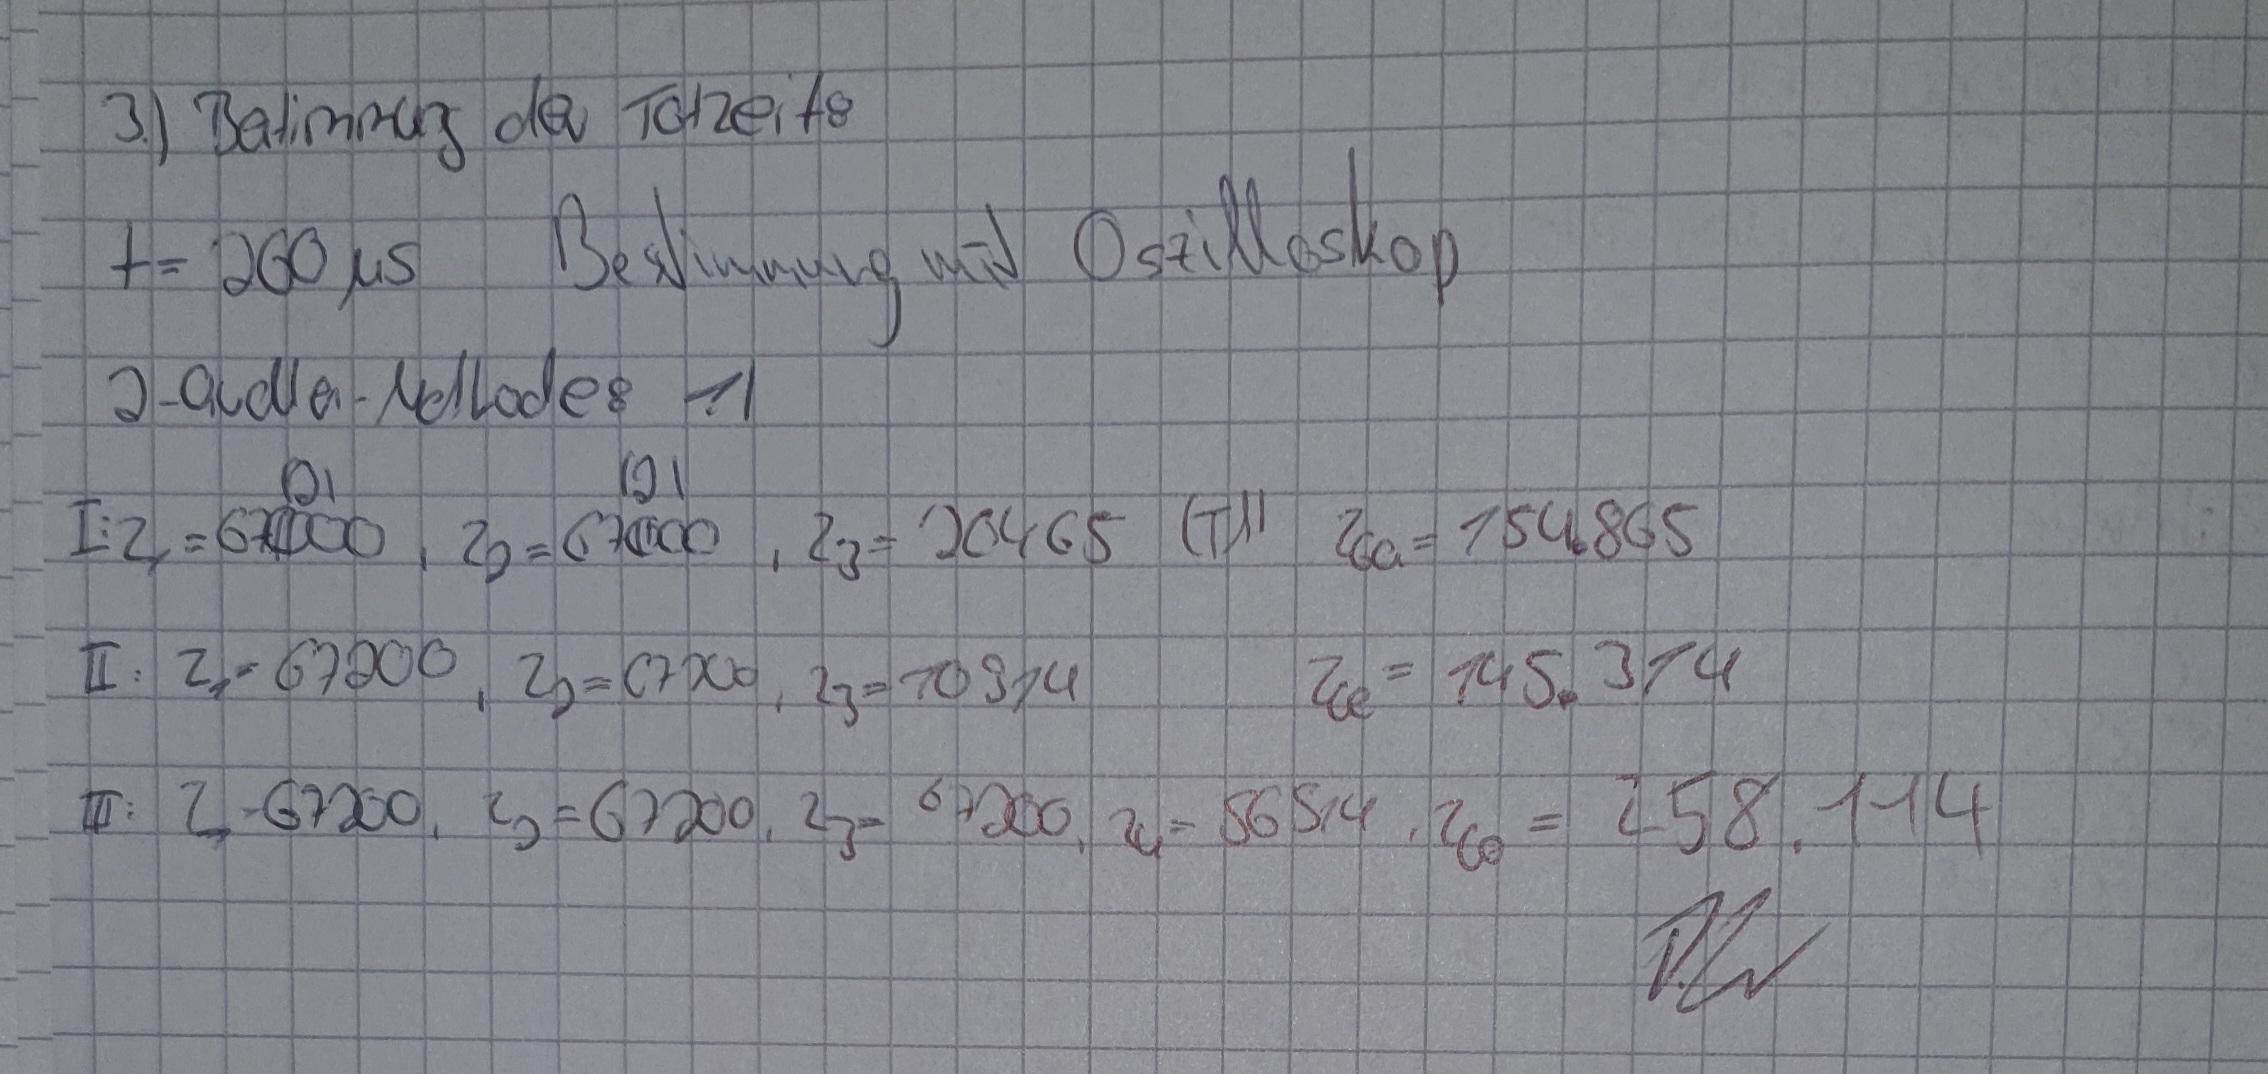 3.) Bestimmung der Totzeit:
t = 260 µs Bestimmung mit Oszilloskop
2-Quellen-Methode:
I: z₁ = 67200, z₂ = 67200, z₃ = 20465 z_ga = 154.865
II: z₁ = 67200, z₂ = 67200, z₃ = 10914 = 145.314
III: z₁ = 67200, z₂ = 67200, z₃ = 67200, z₄ = 56514, = 258.114